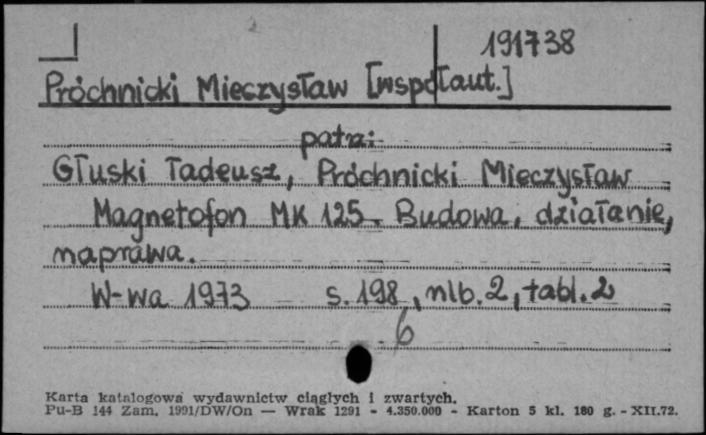 191738
Próchnicki Mieczysław [współaut.]
patrz:
Głuski Tadeusz, Próchnicki Mieczysław
Magnetofon MK 125. Budowa, działanie,
naprawa.
W-wa 1973 s. 198, nlb. 2, tabl. 2
6
Karta katalogowa wydawnictw ciągłych i zwartych.
Pu-B 144 Zam. 1991/DW/On — Wrak 1291 - 4.350.000 - Karton 5 kl. 180 g. - XII.72.